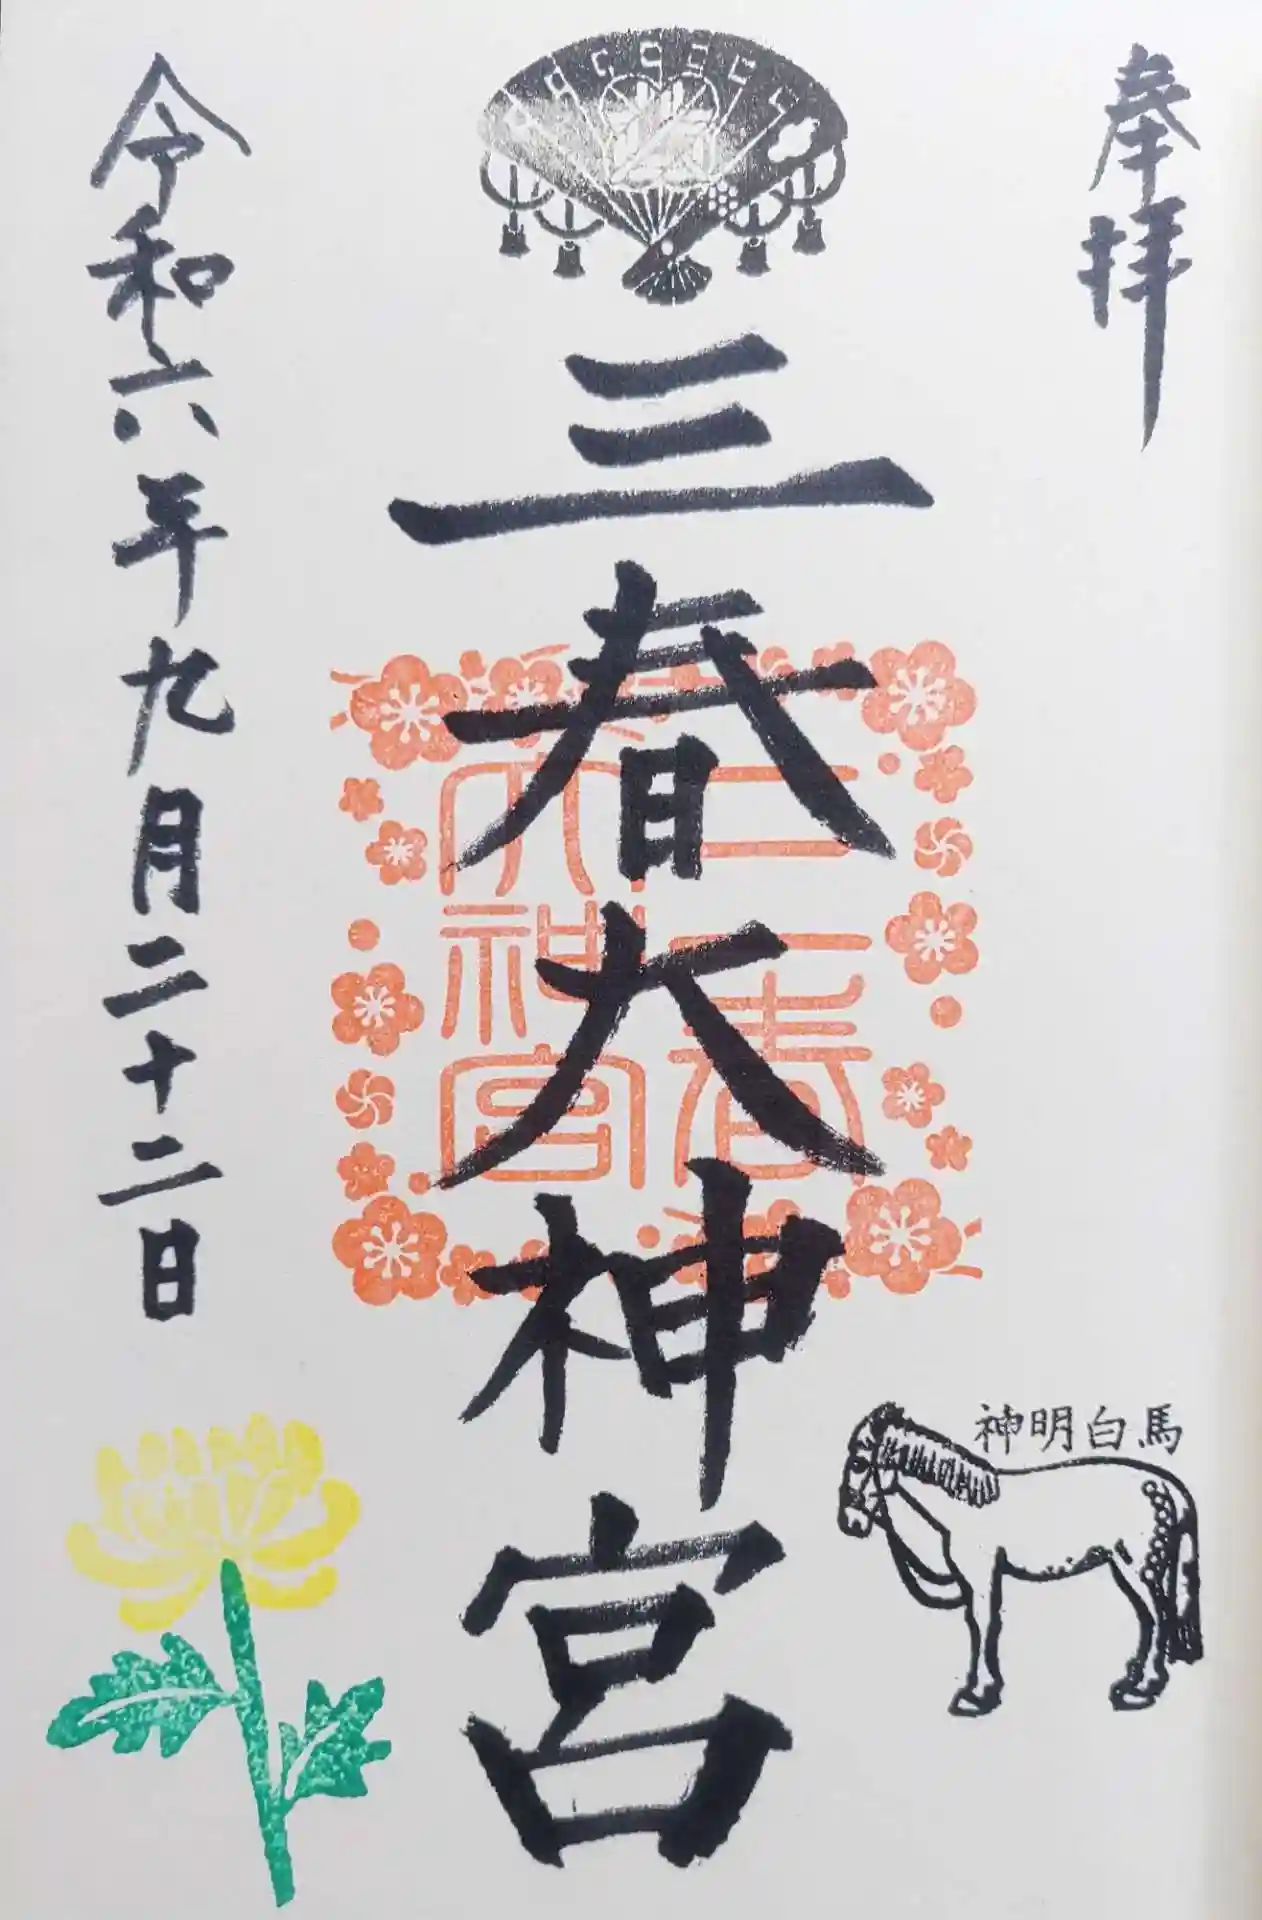 奉拝
三春大神宮
三春
大神宮
神明白馬
令和六年九月二十二日